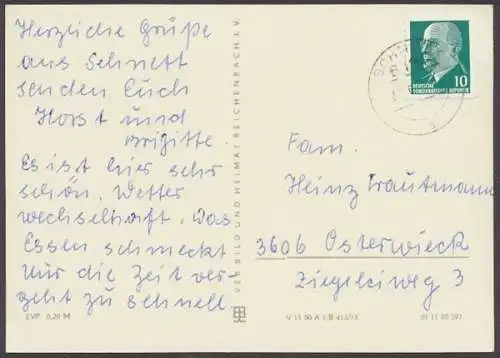 Herzliche Grüße
aus Schnett
senden Euch
Horst und
Brigitte.
Es ist hier sehr
schön. Wetter
wechselhaft. Das
Essen schmeckt
nur die Zeit ver-
geht zu schnell
EVP 0,20 M
VEB BILD UND HEIMAT REICHENBACH I. V.
10
DEUTSCHE
DEMOKRATISCHE REPUBLIK
Fam.
Heinz Trautmann
3606 Osterwieck
Ziegeleiweg 3
V 11 50 A 1/B
01 11 08 097